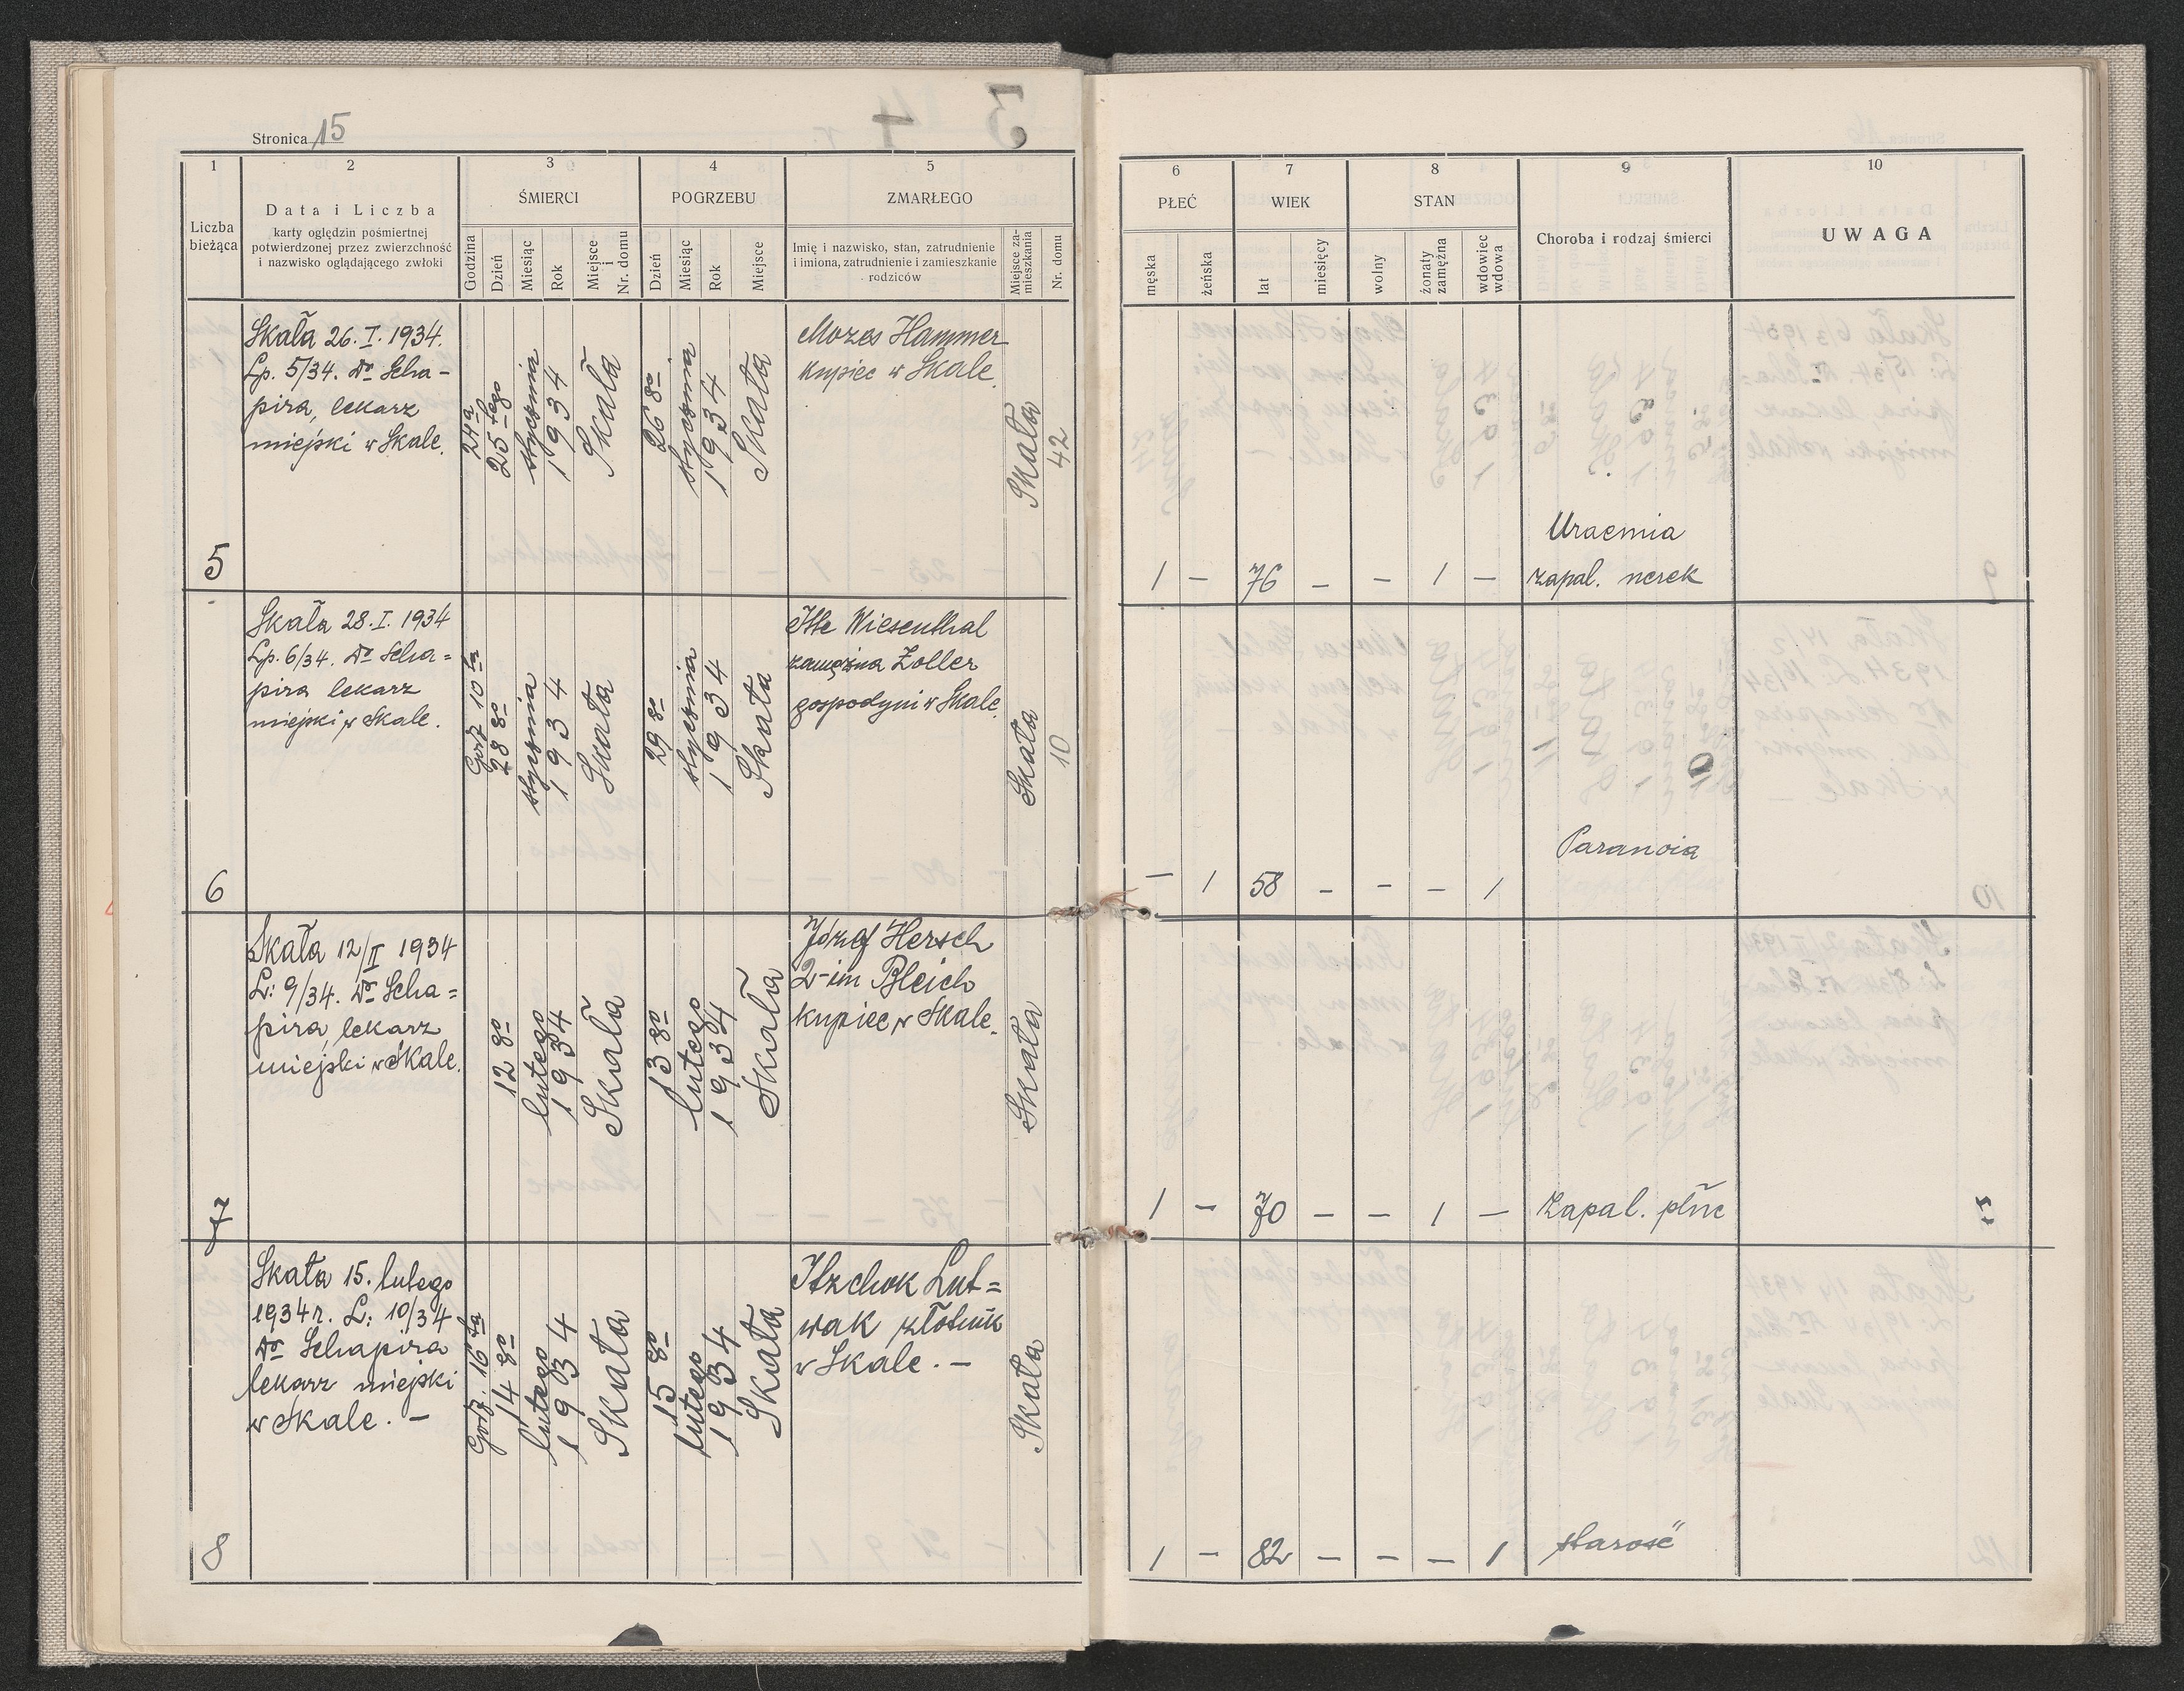 Stronica 15
1
2
3
4
5
Liczba
bieżąca
Data i Liczba
karty oględzin pośmiertnej
potwierdzonej przez zwierzchność
i nazwisko oglądającego zwłoki
ŚMIERCI
Godzina
Dzień
Miesiąc
Rok
Miejsce
i
Nr. domu
POGRZEBU
Dzień
Miesiąc
Rok
Miejsce
ZMARŁEGO
Imię i nazwisko, stan, zatrudnienie
i imiona, zatrudnienie i zamieszkanie
rodziców
Miejsce za-
mieszkania
Nr. domu
6
7
8
9
10
PŁEĆ
męska
żeńska
WIEK
lat
miesięcy
STAN
wolny
żonaty
zamężna
wdowiec
wdowa
Choroba i rodzaj śmierci
UWAGA
5
Skała 26. I. 1934.
Lp. 5/34. Dr Scha-
pira, lekarz
miejski w Skale.
24a
25-tego
stycznia
1934
Skała
26 go
stycznia
1934
Skała
Mozes Hammer
kupiec w Skale.
Skała
42
1 – 76 – – 1 –
Uraemia
zapal. nerek
6
Skała 28. I. 1934
Lp. 6/34. Dr Scha=
pira lekarz
miejski w Skale.
Godz 10ta
28 go
stycznia
1934
Skała
29 go
stycznia
1934
Skała
Itte Wiesenthal
zamężna Zoller
gospodyni w Skale.
Skała
10
– 1 58 – – – 1
Paranoia
7
Skała 12/II 1934
L: 9/34. Dr Scha=
pira, lekarz
miejski w Skale.
12 go
lutego
1934
Skała
13 go
lutego
1934
Skała
Józef Hersch
2-im Bleich
kupiec w Skale.
Skała
1 – 70 – – 1 –
Zapal. płuc
8
Skała 15. lutego
1934 r. L: 10/34
Dr Schapira
lekarz miejski
w Skale. –
Godz. 16ta
14 go
lutego
1934
Skała
15 go
lutego
1934
Skała
Itzchok Lut=
wak złotnik
w Skale. –
Skała
1 – 82 – – – 1
starość